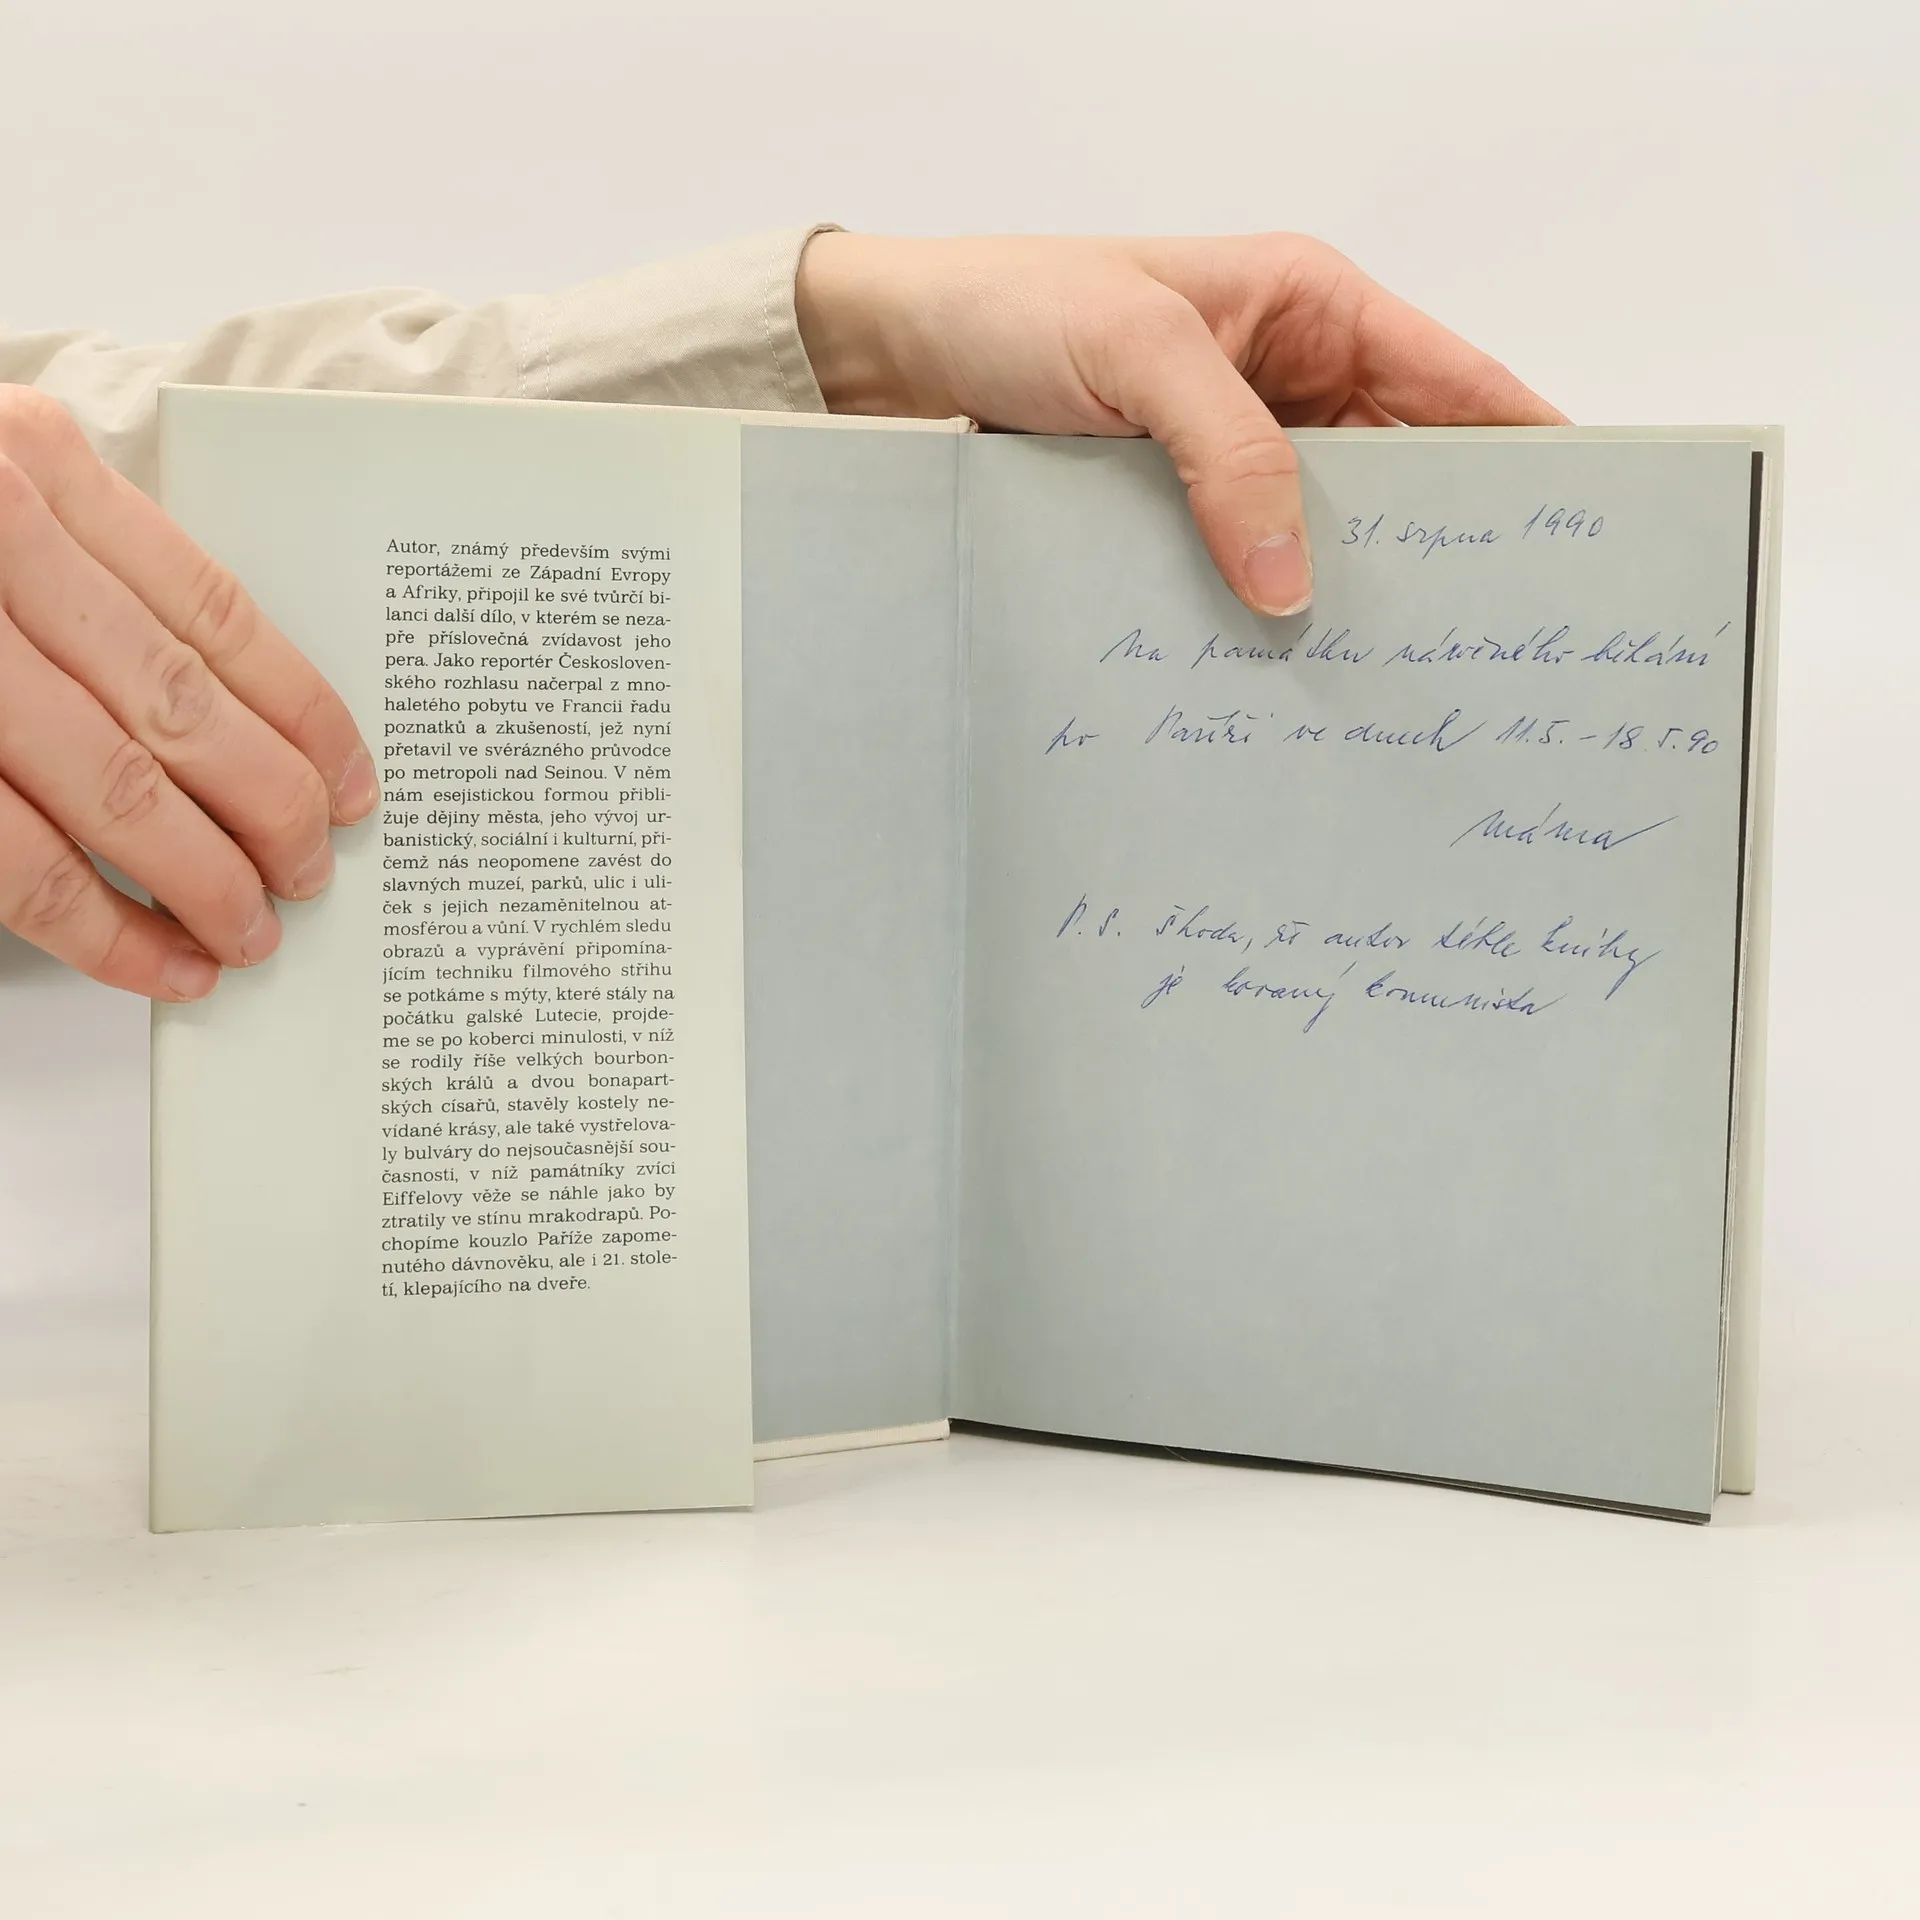 Autor, známý především svými
reportážemi ze Západní Evropy
a Afriky, připojil ke své tvůrčí bi-
lanci další dílo, v kterém se neza-
pře příslovečná zvídavost jeho
pera. Jako reportér Českosloven-
ského rozhlasu načerpal z mno-
haletého pobytu ve Francii řadu
poznatků a zkušeností, jež nyní
přetavil ve svérázného průvodce
po metropoli nad Seinou. V něm
nám esejistickou formou přibli-
žuje dějiny města, jeho vývoj ur-
banistický, sociální i kulturní, při-
čemž nás neopomene zavést do
slavných muzeí, parků, ulic i uli-
ček s jejich nezaměnitelnou at-
mosférou a vůní. V rychlém sledu
obrazů a vyprávění připomína-
jícím techniku filmového střihu
se potkáme s mýty, které stály na
počátku galské Lutecie, projde-
me se po koberci minulosti, v níž
se rodily říše velkých bourbon-
ských králů a dvou bonapart-
ských císařů, stavěly kostely ne-
vídané krásy, ale také vystřelova-
ly bulváry do nejsoučasnější sou-
časnosti, v níž památníky zvíci
Eiffelovy věže se náhle jako by
ztratily ve stínu mrakodrapů. Po-
chopíme kouzlo Paříže zapome-
nutého dávnověku, ale i 21. stole-
tí, klepajícího na dveře.
31. srpna 1990
Na památku náročného běhání
po Paříži ve dnech 11.5. - 18.5.90
máma
P.S. Škoda, že autor téhle knihy
je kovaný komunista